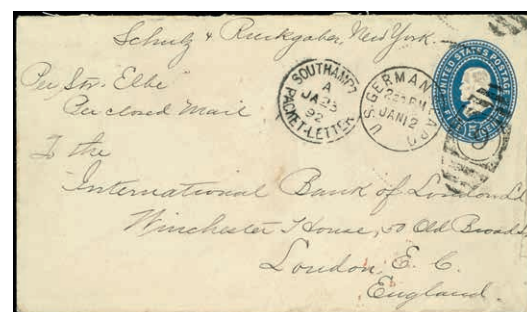 Schulz & Ruckgaber, New York.
Per Str. Elbe
Per closed Mail
SOUTHAMPT
A
JA 23
92
PACKET-LETTER
U.S. GERMAN
JAN 12
UNITED STATES POSTAGE
To the
International Bank of London Ld
Winchester House, 50 Old Broad
London, E. C.
England.